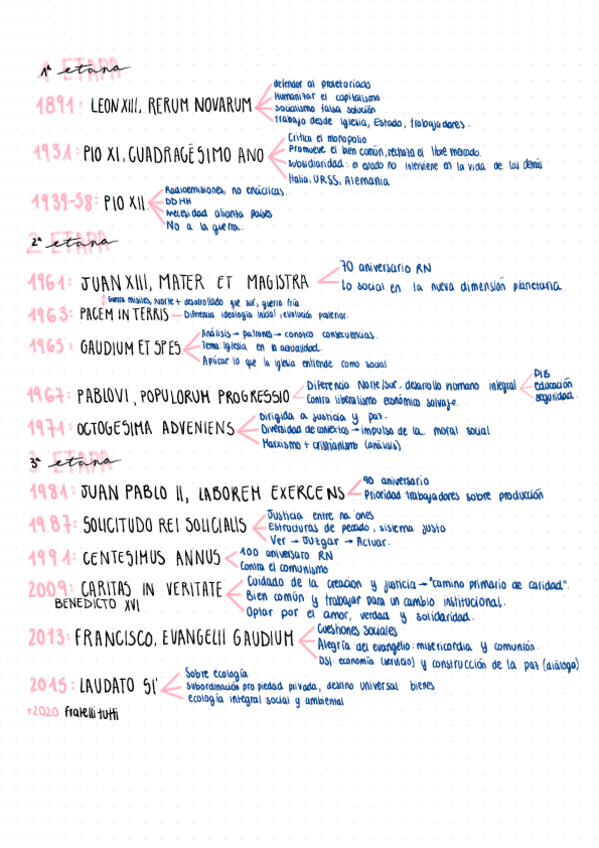 1ª etapa
1ª ETAPA
1891: LEON XIII, RERUM NOVARUM
defender al proletariado
Humanizar el capitalismo
Socialismo falsa solución
trabajo desde Iglesia, Estado, trabajadores.
1931: PIO XI, CUADRAGÉSIMO ANO
Critica el monopolio
Promueve el bien común, rechaza el libre mercado.
subsidiaridad: el estado no interviene en la vida de los demás
Italia, URSS, Alemania
1939-58: PIO XII
Radioemisiones, no encíclicas.
DDHH
Necesidad alianza países
No a la guerra.
2ª etapa
2ª ETAPA
1961: JUAN XIII, MATER ET MAGISTRA
70 aniversario RN
Lo social en la nueva dimensión planetaria
Guerra misiles, Norte + desarrollado que sur, guerra fría
1963: PACEM IN TERRIS — Diferencia ideología inicial, evolución posterior.
1965: GAUDIUM ET SPES
Análisis → patrones → conozco consecuencias.
Tema Iglesia en la actualidad.
Aplicar lo que la iglesia entiende como social
1967: PABLO VI, POPULORUM PROGRESSIO
Diferencia Norte/Sur, desarrollo humano integral
PIB
educación
seguridad.
Contra liberalismo económico salvaje.
1971: OCTOGESIMA ADVENIENS
Dirigida a justicia y paz.
Diversidad de contextos → impulso de la moral social
Marxismo + cristianismo (análisis)
3ª etapa
3ª ETAPA
1981: JUAN PABLO II, LABOREM EXERCENS
90 aniversario
Prioridad trabajadores sobre producción
1987: SOLICITUDO REI SOLICIALIS
Justicia entre naciones
Estructuras de pecado, sistema justo
Ver → Juzgar → Actuar.
1991: CENTESIMUS ANNUS
100 aniversaro RN
Contra el comunismo
2009: CARITAS IN VERITATE
BENEDICTO XVI
Cuidado de la creacion y justicia → "camino primario de caridad".
Bien común y trabajar para un cambio institucional.
Optar por el amor, verdad y solidaridad.
2013: FRANCISCO, EVANGELII GAUDIUM
Cuestiones sociales
Alegría del evangelio: misericordia y comunión.
DSI: economía (servicio) y construcción de la paz (diálogo)
2015: LAUDATO SI'
Sobre ecología
Subordinación propiedad privada, destino universal bienes
ecología integral social y ambiental
+2020 fratelli tutti